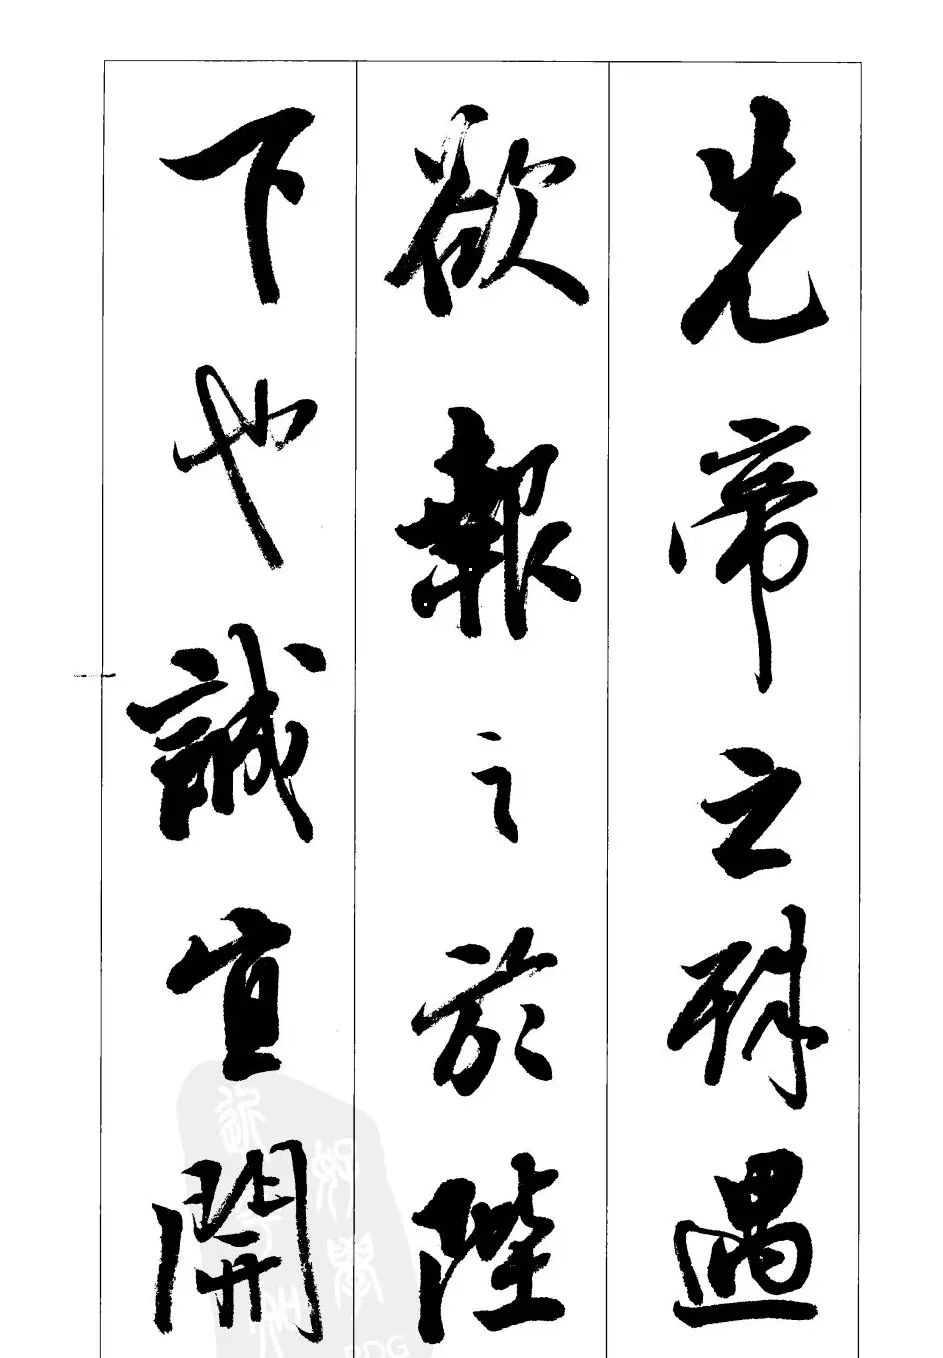 先帝之殊遇
欲報之於陛
下也誠宜開